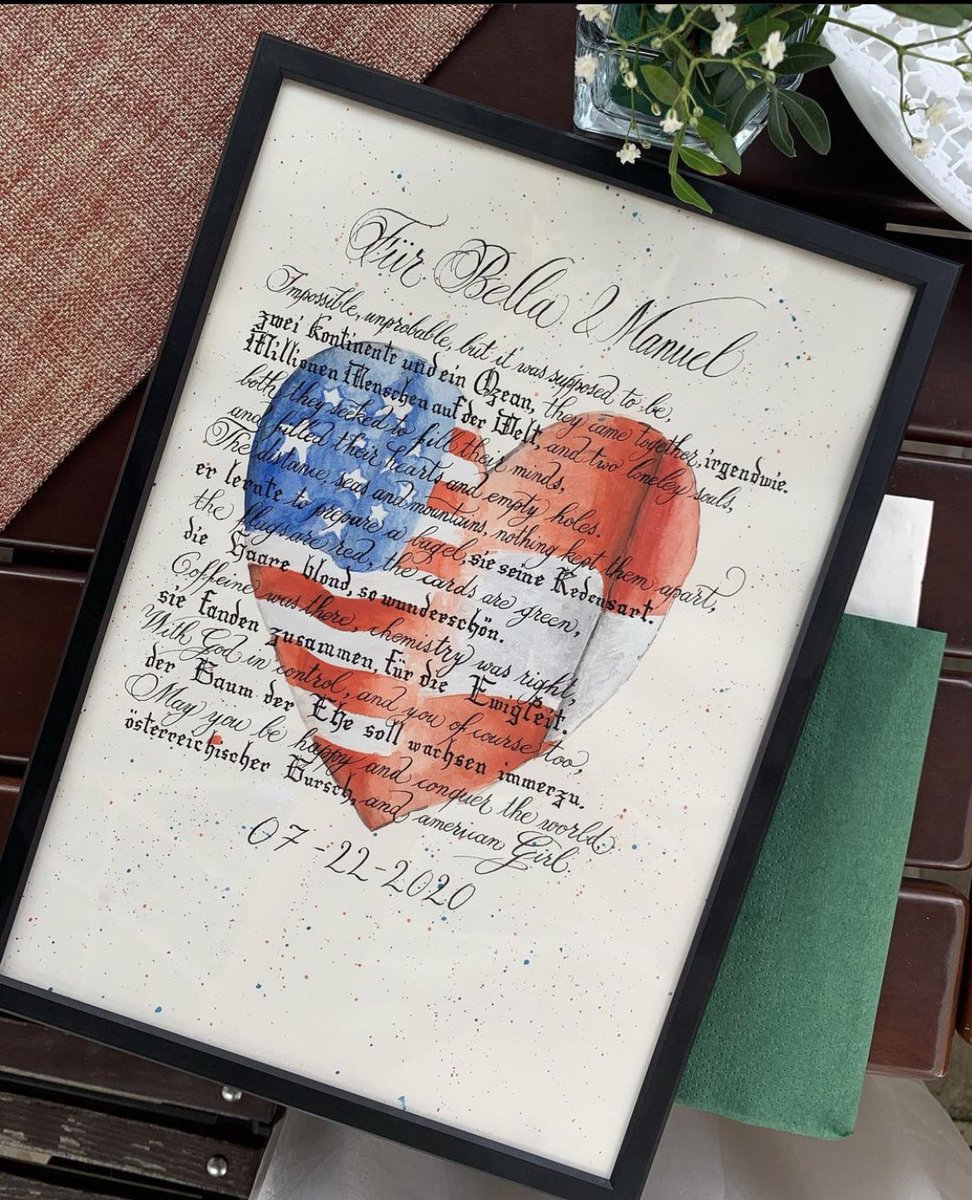 Für Bella & Manuel
Impossible, unprobable, but it was supposed to be
zwei Kontinente und ein Ozean, they came together, irgendwie.
Millionen Menschen auf der Welt, and two loneley souls,
both they seeked to fill their minds,
and filled their hearts and empty holes.
The distance, seas and mountains, nothing kept them apart,
er lernte to prepare a bagel, sie seine Redensart.
the flags are red, the cards are green,
die Haare blond, so wunderschön.
Coffeine was there, chemistry was right,
sie fanden zusammen, für die Ewigkeit.
With God in control, and you of course too,
der Baum der Ehe soll wachsen immerzu.
May you be happy and conquer the world.
österreichischer Bursch, and american Girl.
07-22-2020